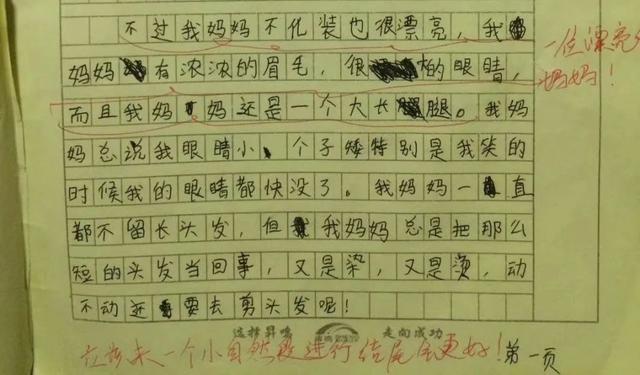 不过我妈妈不化装也很漂亮，我
妈妈有浓浓的眉毛，很大的眼睛，
而且我妈妈还是一个大长腿。我妈
妈总说我眼睛小、个子矮特别是我笑的
时候我的眼睛都快没了。我妈妈一直
都不留长头发，但我妈妈总是把那么
短的头发当回事，又是染，又是烫，动
不动还要去剪头发呢！
一位漂亮
妈妈！
选择昇鸣
走向成功
应该来一个小自然段进行结尾会更好！
第一页